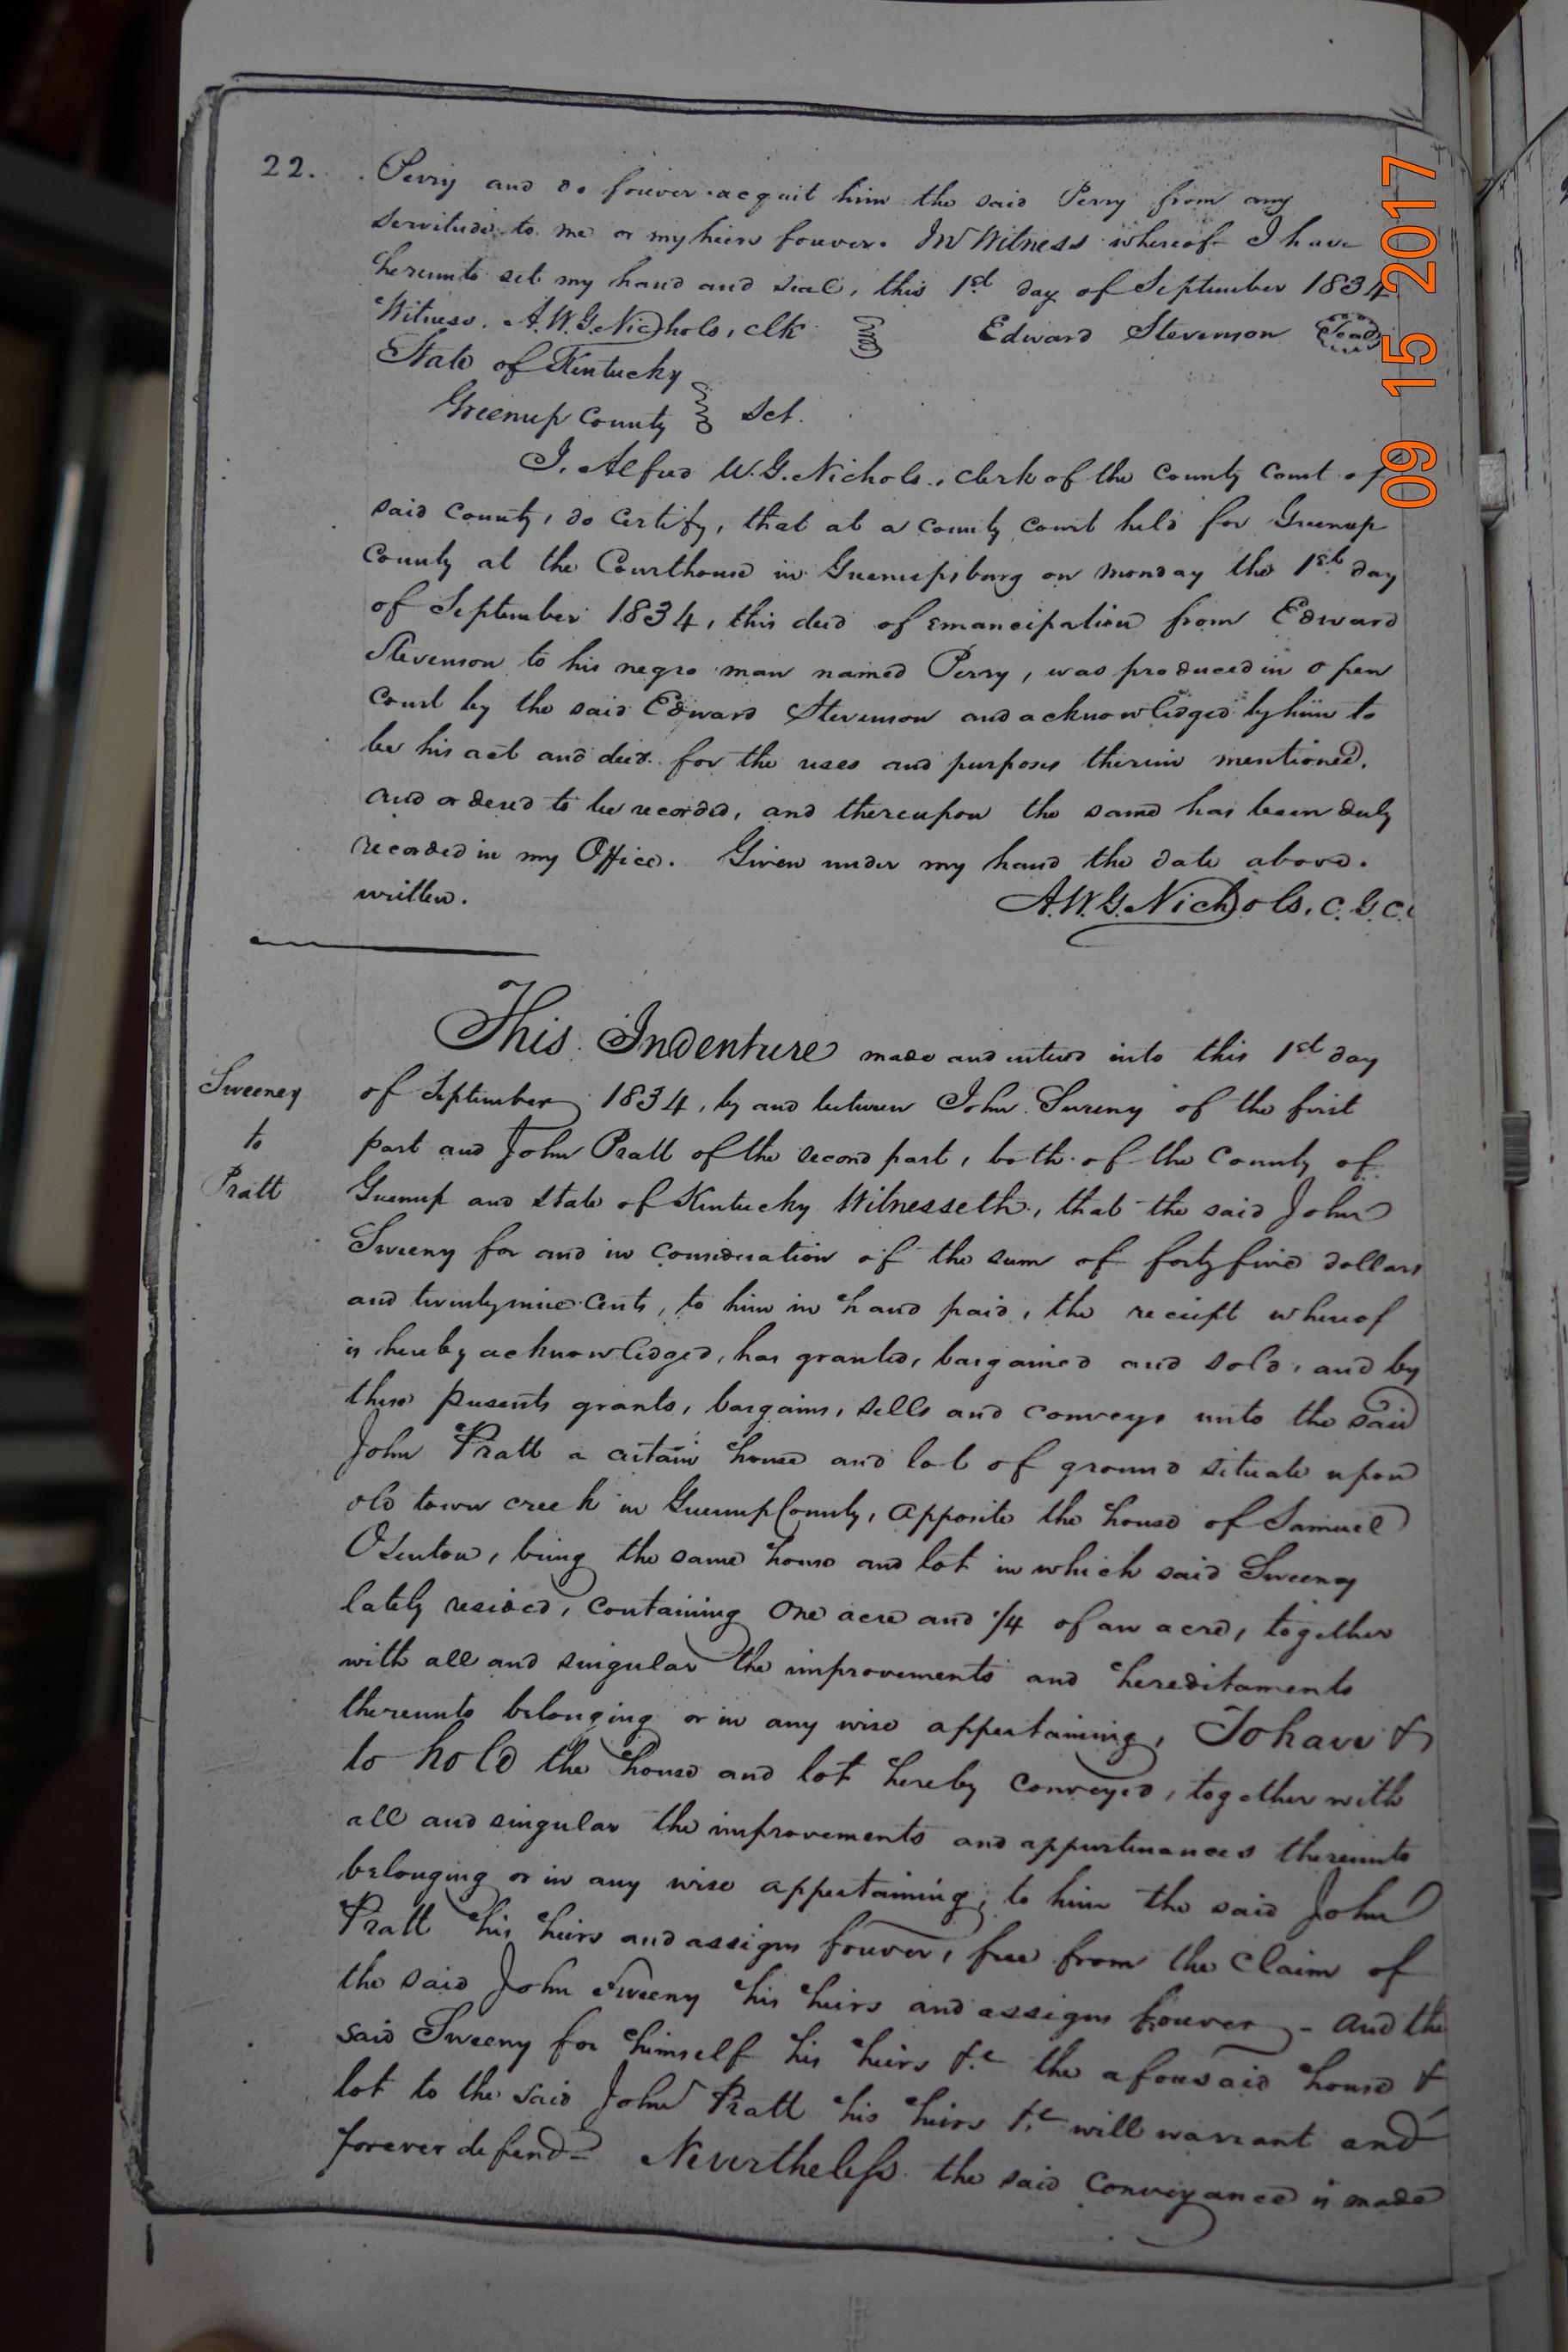 22.
Perry and do forever acquit him the said Perry from any
servitude to me or my heirs forever. In Witness whereof I have
hereunto set my hand and seal, this 1st day of September 1834
Witness. A.W.G. Nichols, clk Edward Stevenson Seal
State of Kentucky
Greenup County Sct.
I, Alfred W.G. Nichols, clerk of the County Court of
said county, do certify, that at a county court held for Greenup
County at the Courthouse in Greenupsburg on Monday the 1st day
of September 1834, this deed of emancipation from Edward
Stevenson to his negro man named Perry, was produced in open
Court by the said Edward Stevenson and acknowledged by him to
be his act and deed for the uses and purposes therein mentioned,
and ordered to be recorded, and thereupon the same has been duly
recorded in my Office. Given under my hand the date above.
written. A.W.G. Nichols, C.G.C.C
This Indenture made and entered into this 1st day
Sweeney
to
Pratt
of September 1834, by and between John Sweeny of the first
part and John Pratt of the second part, both of the County of
Greenup and State of Kentucky Witnesseth, that the said John
Sweeny for and in consideration of the sum of forty five dollars
and twenty nine cents, to him in hand paid, the receipt whereof
is hereby acknowledged, has granted, bargained and sold, and by
these presents grants, bargains, sells and conveys unto the said
John Pratt a certain house and lot of ground situate upon
old town creek in Greenup County, Apposite the house of Samuel
Osenton, being the same house and lot in which said Sweeny
lately resided, containing One acre and 1/4 of an acre, together
with all and singular the improvements and hereditaments
thereunto belonging or in any wise appertaining, To have &
to hold the house and lot hereby conveyed, together with
all and singular the improvements and appurtenances thereunto
belonging or in any wise appertaining; to him the said John
Pratt his heirs and assigns forever, free from the claim of
the said John Sweeny his heirs and assigns forever - and the
said Sweeny for himself his heirs &c the aforesaid house &
lot to the said John Pratt his heirs &c will warrant and
forever defend - Nevertheless the said conveyance is made
09 15 2017